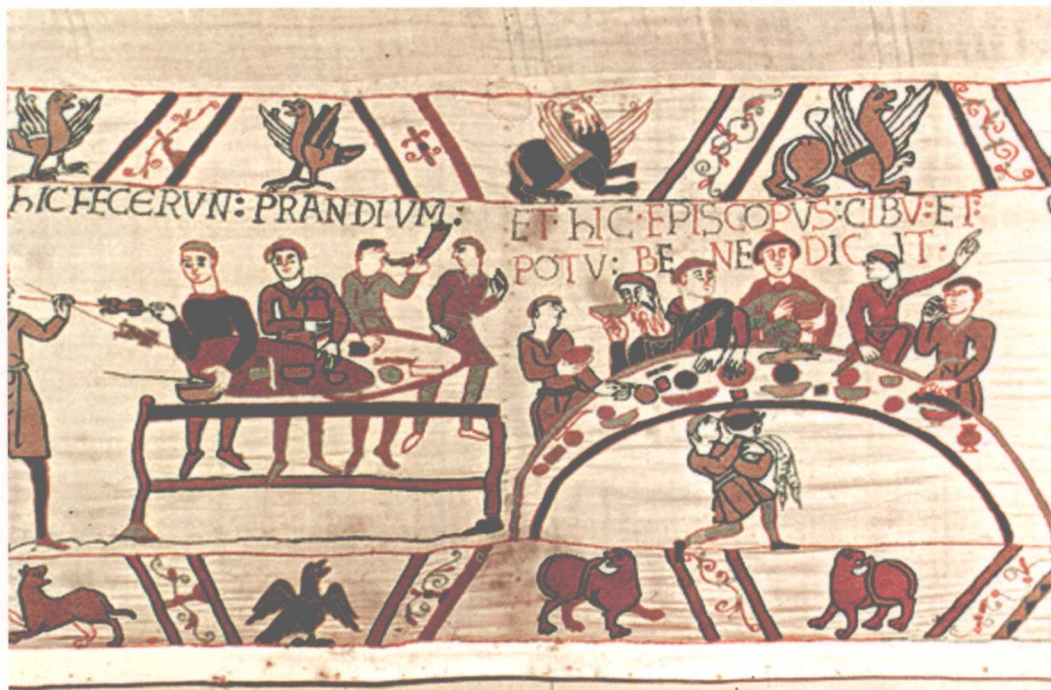 hIC FECERVN: PRANDIVM:
ET· hIC· EPISCOPVS: CIBV: ET:
POTV̄: BENEDICIT·